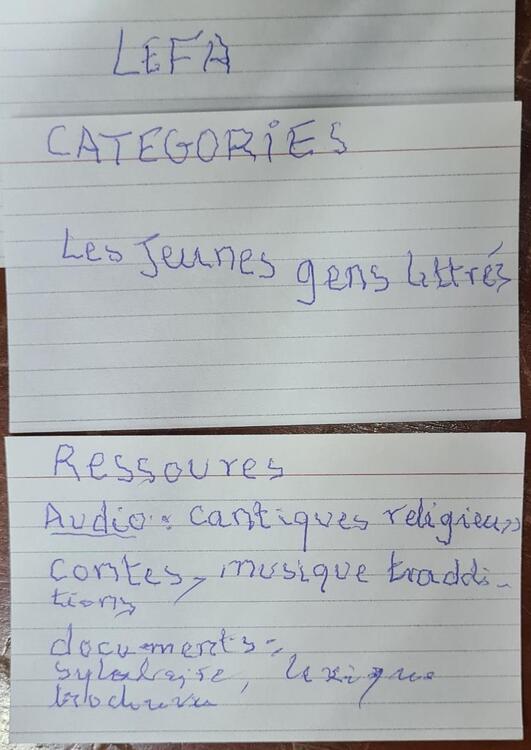 LEFA
CATEGORIES
Les Jeunes gens lettrés
Ressoures
Audio : cantiques religieux
contes, musique traddi-
tions
documents :
syllabaire, lexique
brochure